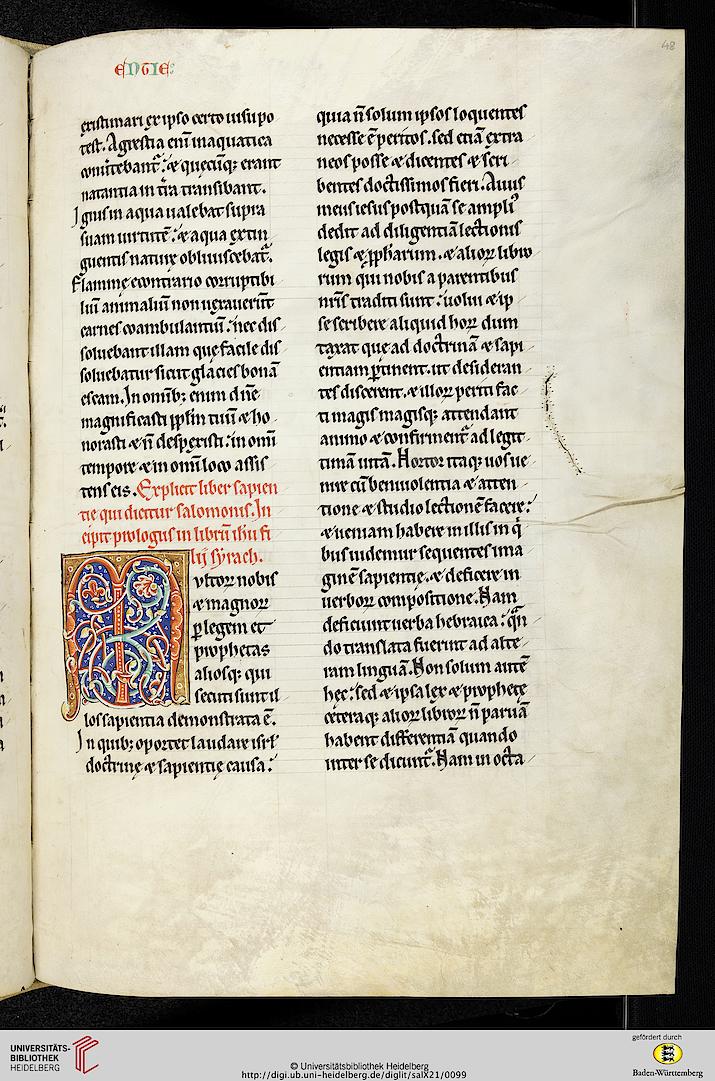 ENTIE:
48
existimari ex ipso certo uisu po
test. Agrestia eni͂ in aquatica
comitebant᷑. ⁊ quecu͂q; erant
natantia in t͂ra transibant.
Ignis in aqua ualebat supra
suam uirtute͂. ⁊ aqua extin
guentis nature obliuiscebat᷑.
Flamme econtrario corruptibi
liu͂ animaliu͂ non uexaueru͂t
carnes coambulantiu͂. nec dis
soluebant illam que facile dis
soluebatur sicut glacies bona͂
escam. In omib; enim dn͂e
magnificasti ppl͂m tuu͂ ⁊ ho
norasti ⁊ n͂ despexisti. in omi͂
tempore ⁊ in omi͂ loco assis
tens eis. Explicit liber sapien
tie qui dicitur salomonis. In
cipit prologus in libru͂ ih͂u fi
lij syrach.
M
ultoꝝ nobis
⁊ magnoꝝ
ꝑ legem et
prophetas
aliosq; qui
secuti sunt il
los sapientia demonstrata e͂.
In quib; oportet laudare isrl͂
doctrine ⁊ sapientie causa.
quia n͂ solum ipsos loquentes
necesse e͂ peritos. sed etia͂ extra
neos posse ⁊ dicentes ⁊ scri
bentes doctissimos fieri. Auus
meus iesus postqua͂ se ampliꝰ
dedit ad diligentia͂ lectionis
legis ⁊ ꝓph͂arum. ⁊ alioꝝ libro
rum qui nobis a parentibus
nr͂is traditi sunt. uolui ⁊ ip
se scribere aliquid hoꝝ dum
taxat que ad doctrina͂ ⁊ sapi
entiam ꝑtinent. ut desideran
tes discerent. ⁊ illoꝝ periti fac
ti magis magisq; attendant
animo ⁊ confirment᷑ ad legit
tima͂ uita͂. Hortor itaq; uos ue
nire cu͂ beniuolentia ⁊ atten
tione ⁊ studio lectione͂ facere.
⁊ ueniam habere in illis in q͛
bus uidemur sequentes ima
gine͂ sapientie. ⁊ deficere in
uerboꝝ compositione. Nam
deficiunt uerba hebraica. qn͂
do translata fuerint ad alte
ram lingua͂. Non solum aute͂
hec. sed ⁊ ipsa lex ⁊ prophete
ceteraq; alioꝝ libroꝝ n͂ parua͂
habent differentia͂ quando
inter se dicunt᷑. Nam in octa
UNIVERSITÄTS-
BIBLIOTHEK
HEIDELBERG
© Universitätsbibliothek Heidelberg
http://digi.ub.uni-heidelberg.de/diglit/salX21/0099
gefördert durch
Baden-Württemberg